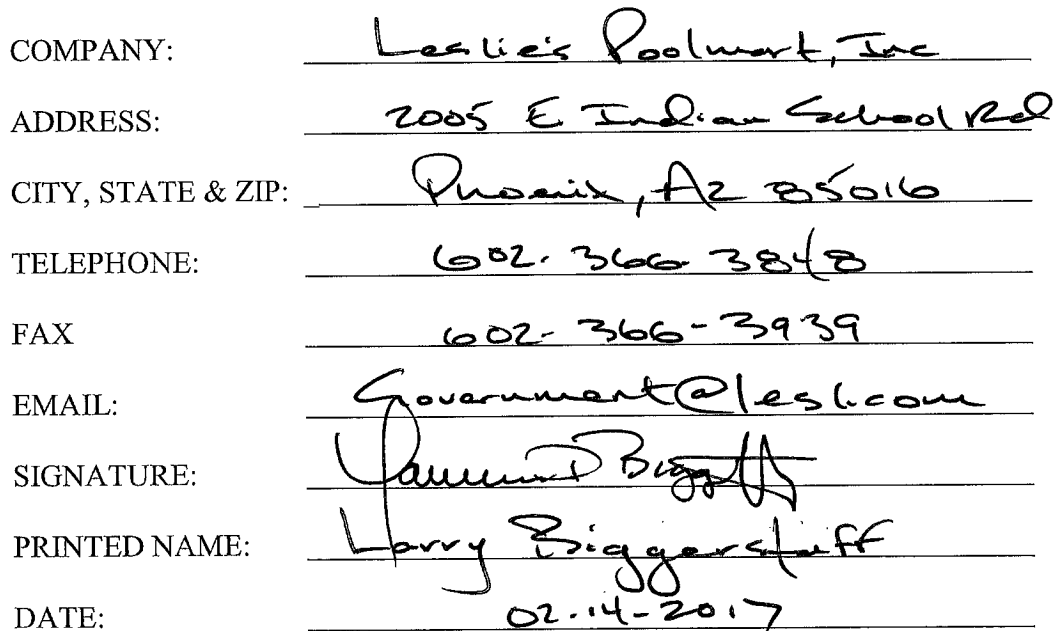 COMPANY: Leslie's Poolmart, Inc
ADDRESS: 2005 E Indian School Rd
CITY, STATE & ZIP: Phoenix, AZ 85016
TELEPHONE: 602. 366. 3848
FAX 602- 366-3939
EMAIL: Government@lesl.com
SIGNATURE:
PRINTED NAME: Larry Biggerstaff
DATE: 02-14-2017